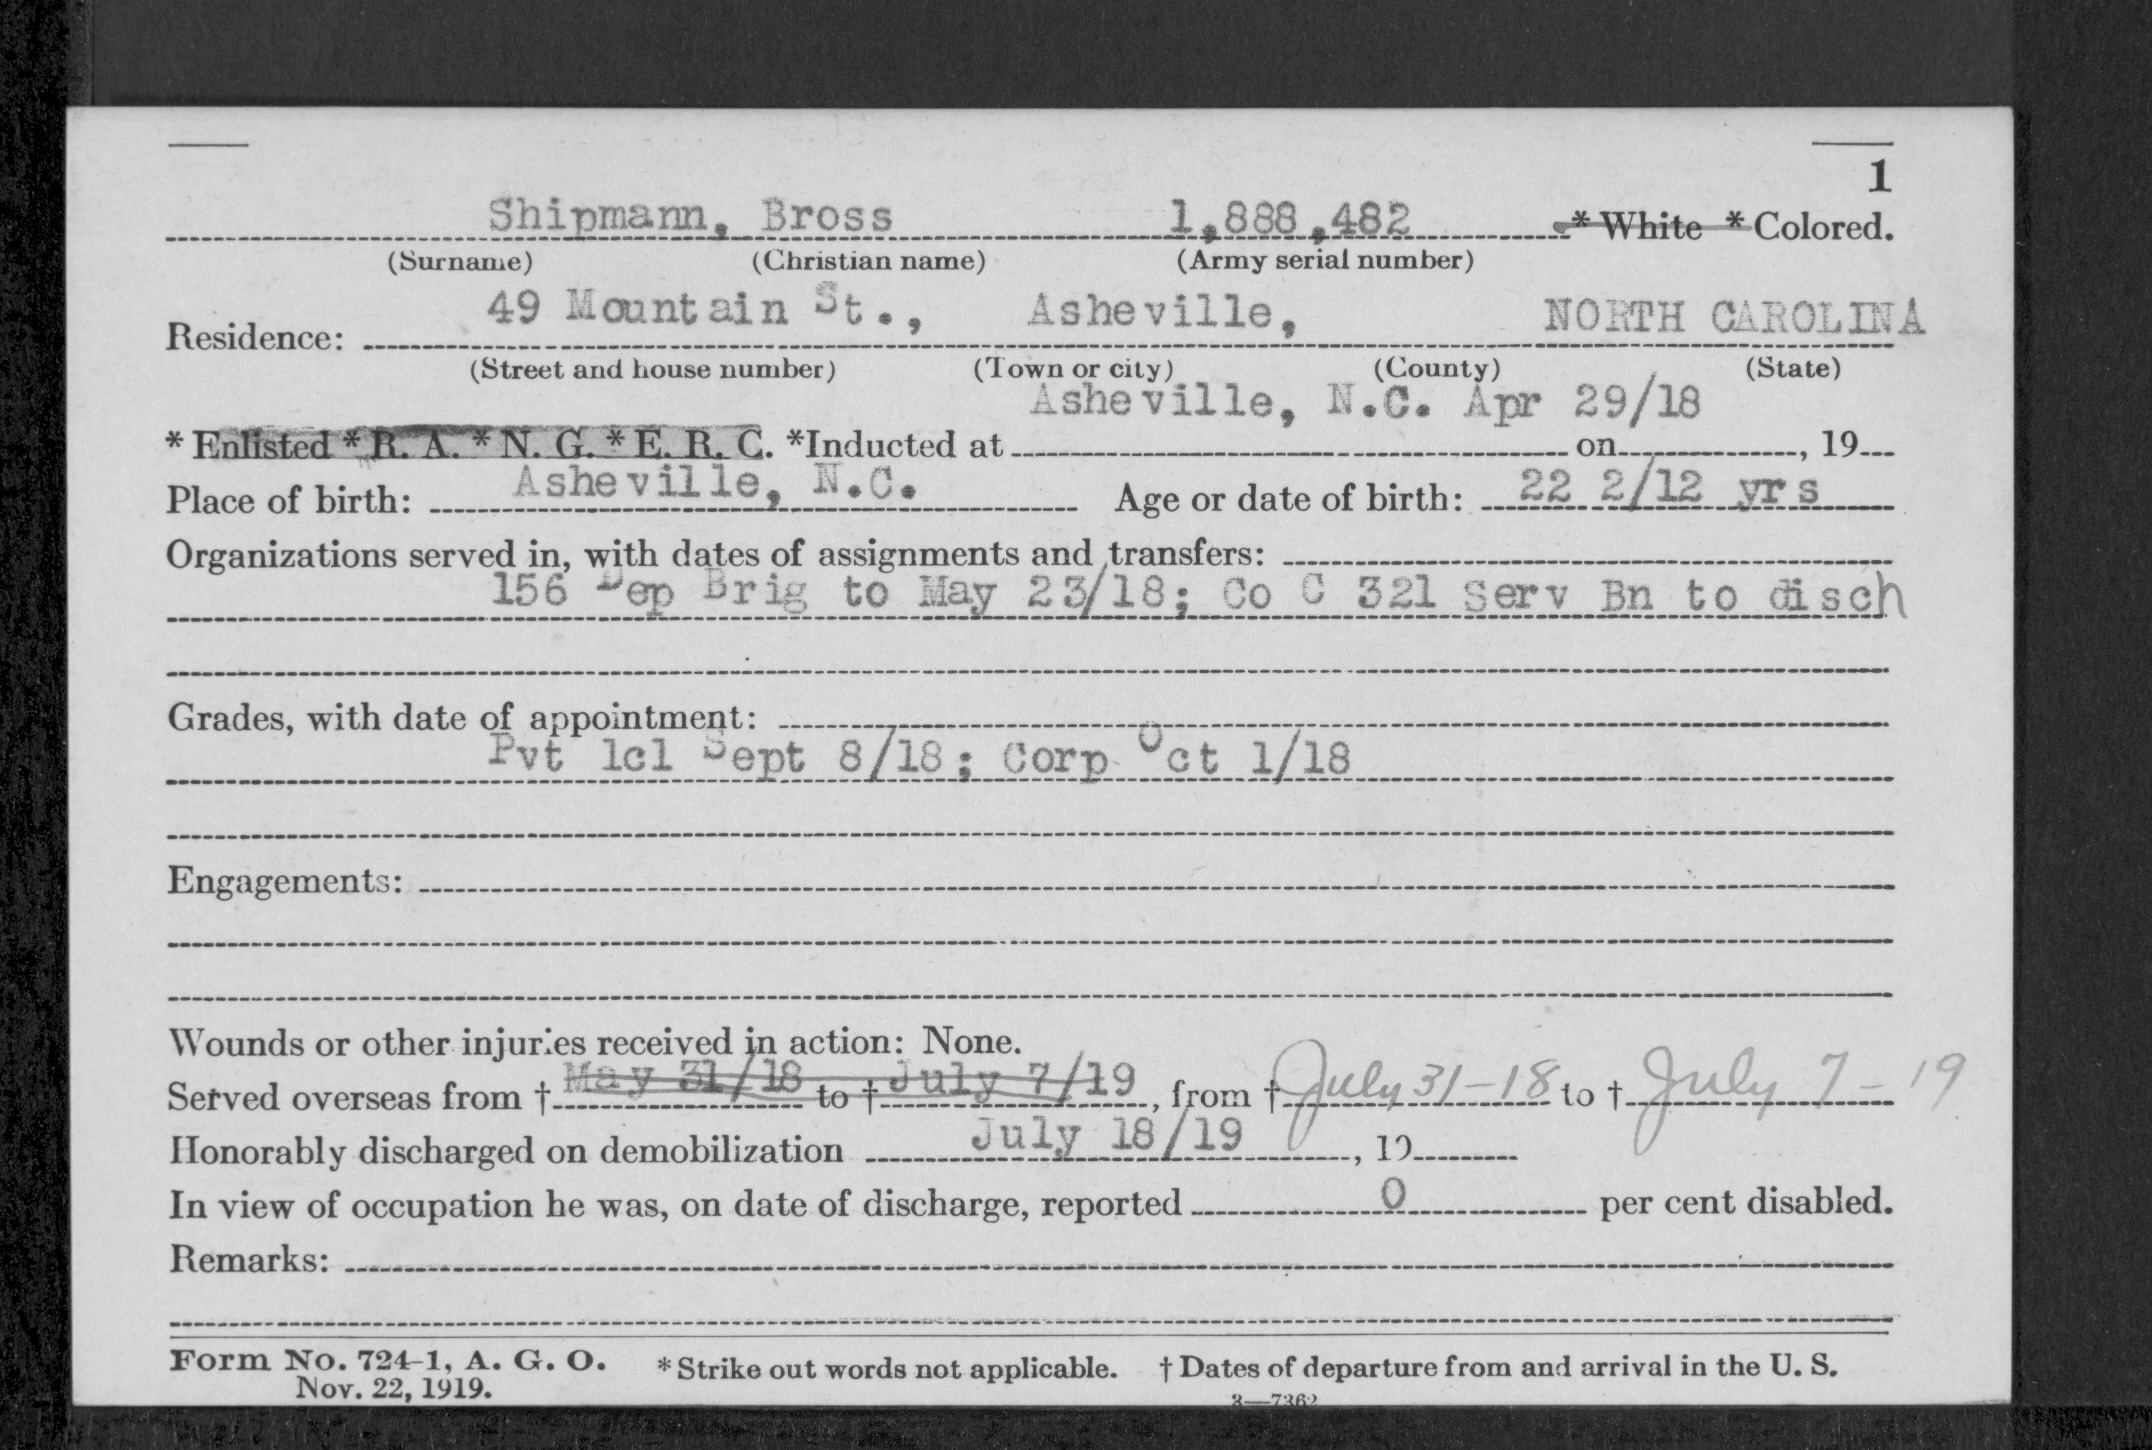 1
Shipmann, Bross 1,888,482 * White * Colored.
(Surname) (Christian name) (Army serial number)
49 Mountain St., Asheville, NORTH CAROLINA
Residence:
(Street and house number) (Town or city) (County) (State)
Asheville, N.C. Apr 29/18
* Enlisted * R. A. * N. G. * E. R. C. *Inducted at on , 19
Place of birth: Asheville, N.C. Age or date of birth: 22 2/12 yrs
Organizations served in, with dates of assignments and transfers:
156 Dep Brig to May 23/18; Co C 321 Serv Bn to disch
Grades, with date of appointment:
Pvt 1cl Sept 8/18; Corp Oct 1/18
Engagements:
Wounds or other injuries received in action: None.
Served overseas from † May 31/18 to † July 7/19, from † July 31-18 to † July 7-19
Honorably discharged on demobilization July 18/19, 19
In view of occupation he was, on date of discharge, reported 0 per cent disabled.
Remarks:
Form No. 724-1, A. G. O. * Strike out words not applicable. † Dates of departure from and arrival in the U. S.
Nov. 22, 1919.
3—7362